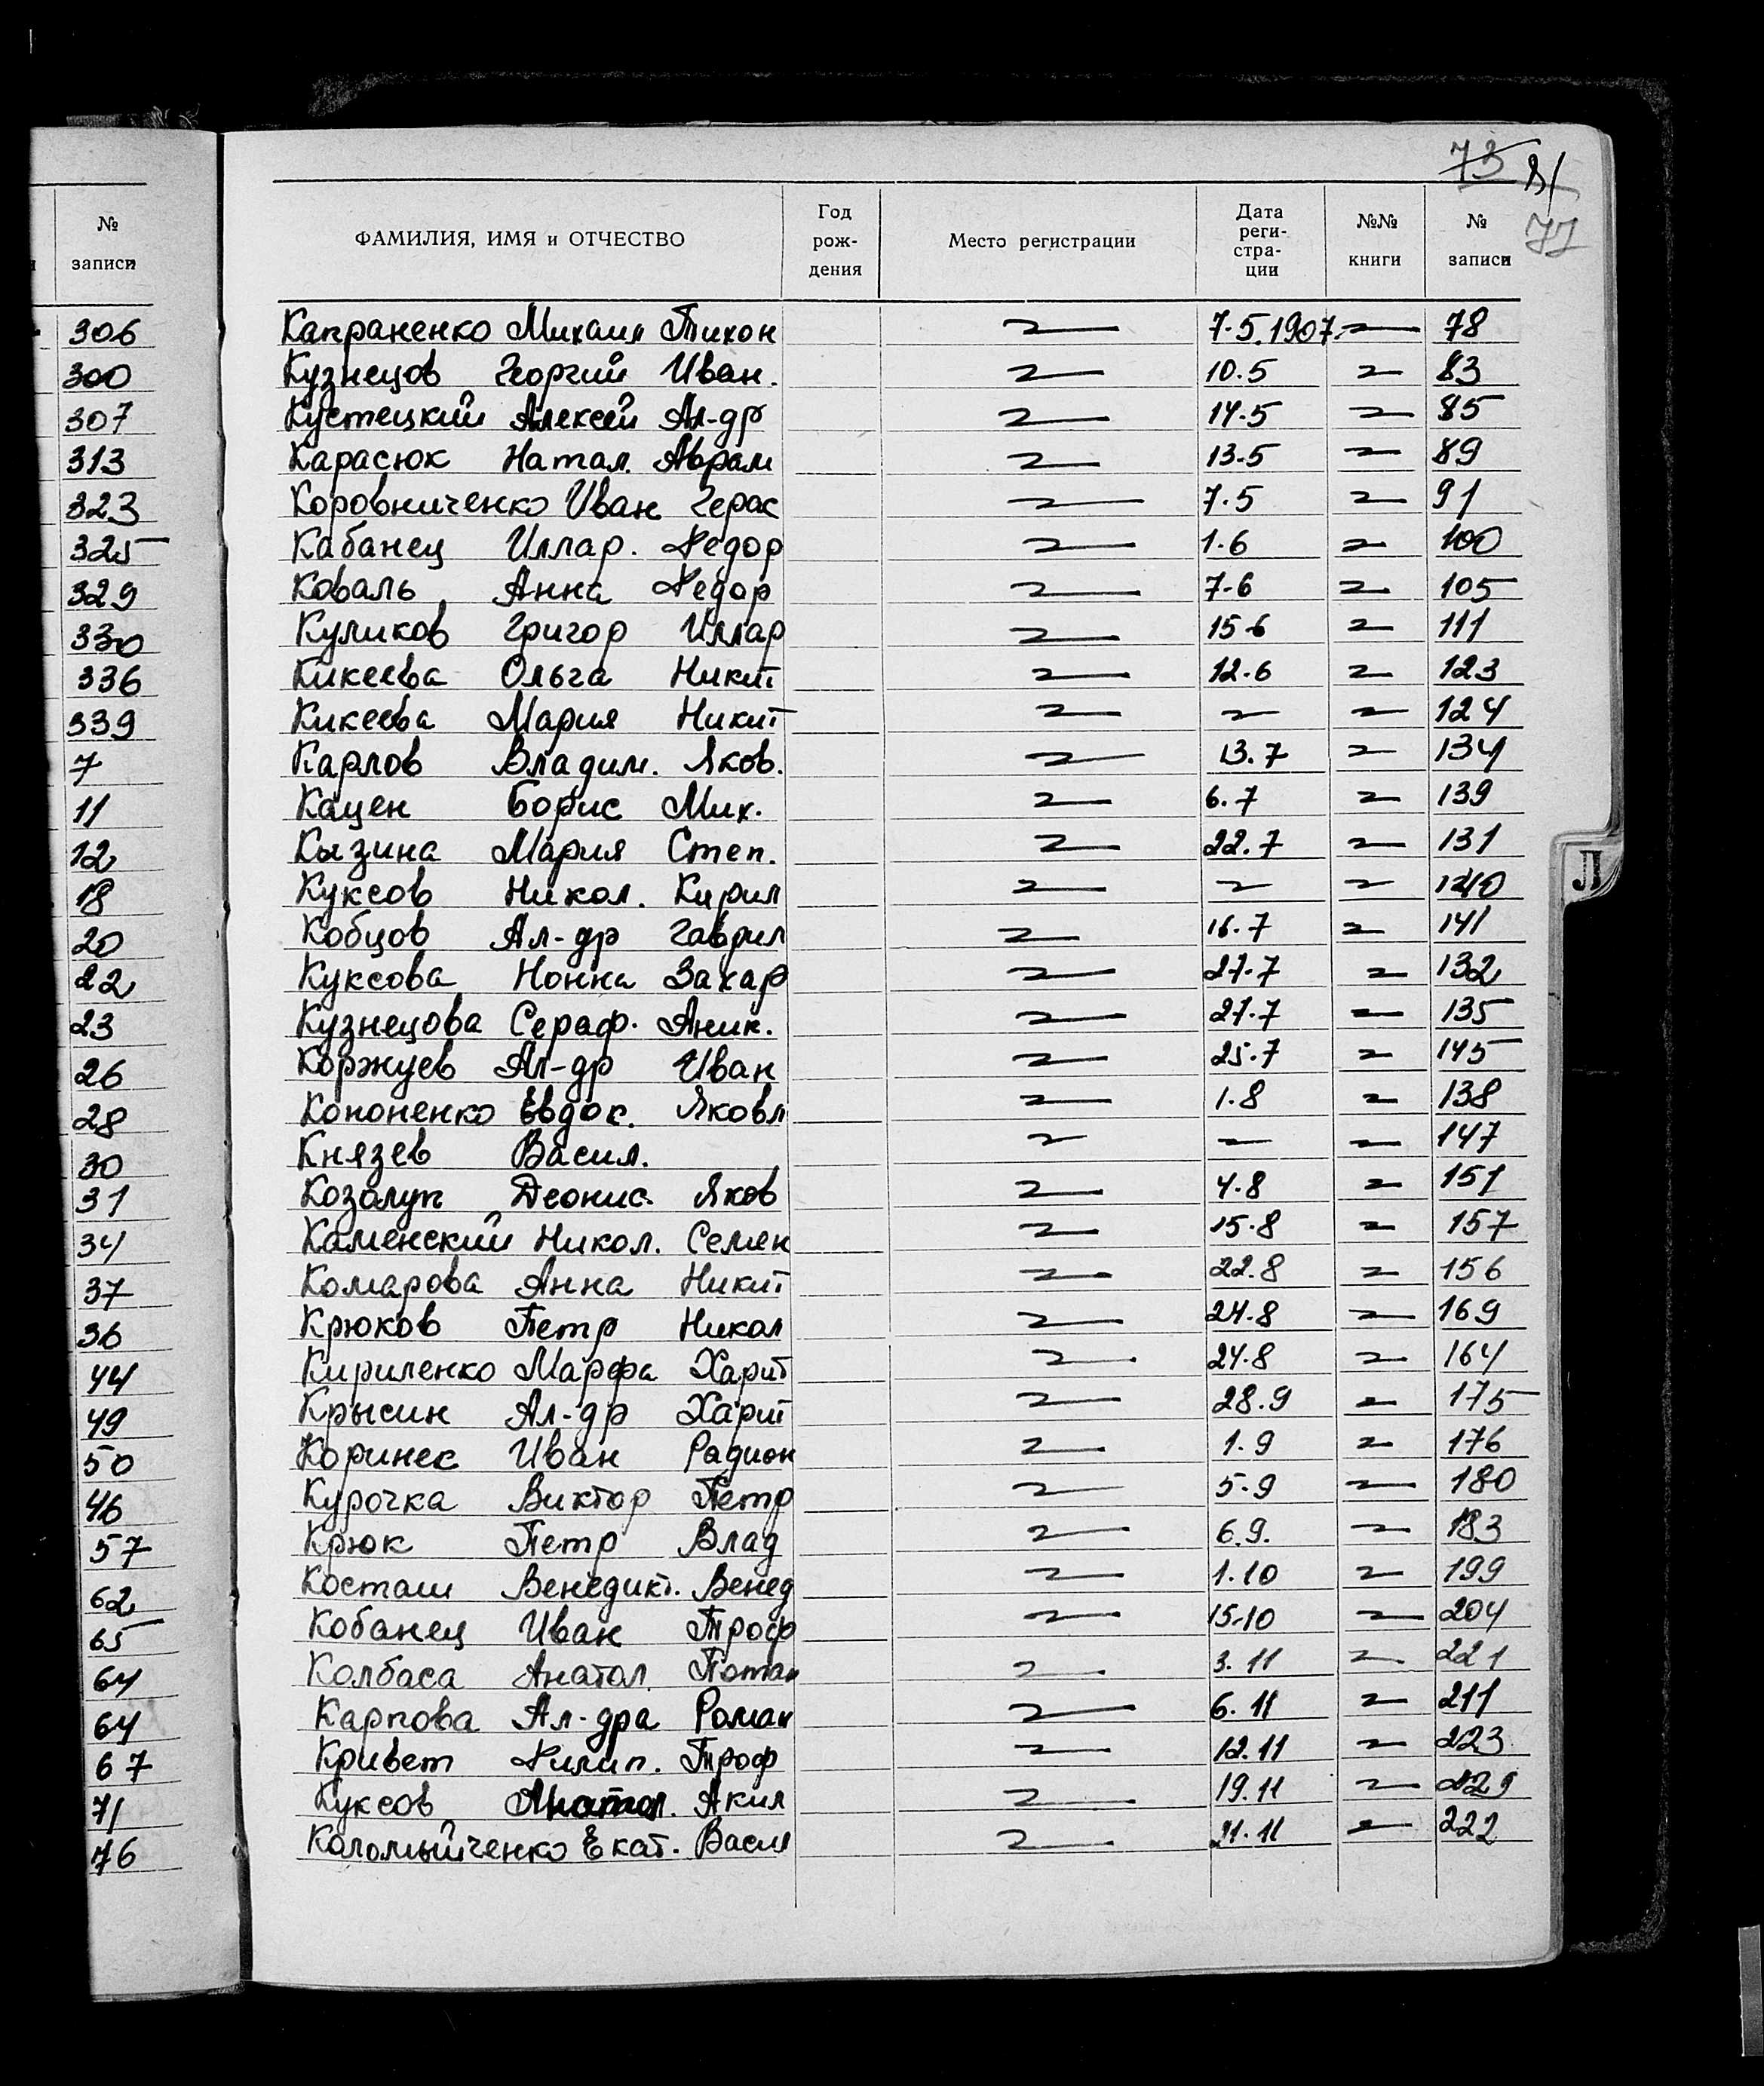 73 81
77
№ записи
306
300
307
313
323
325
329
330
336
339
7
11
12
18
20
22
23
26
28
30
31
34
37
36
44
49
50
46
57
62
65
64
64
67
71
76
ФАМИЛИЯ, ИМЯ и ОТЧЕСТВО Год рож- дения Место регистрации Дата реги- стра- ции №№ книги № записи
Капраненко Михаил Тихон 7.5.1907 78
Кузнецов Георгий Иван. 10.5 83
Кустецкий Алексей Ал-др 14.5 85
Карасюк Натал. Аврам 13.5 89
Коровниченко Иван Герас 7.5 91
Кабанец Иллар. Федор 1.6 100
Коваль Анна Федор 7.6 105
Куликов Григор Иллар 15.6 111
Кикеева Ольга Никит 12.6 123
Кикеева Мария Никит 124
Карлов Владим. Яков. 13.7 134
Кацен Борис Мих. 6.7 139
Кызина Мария Степ. 22.7 131
Куксов Никол. Кирил 140
Кобцов Ал-др Гаврил 16.7 141
Куксова Нонна Захар 27.7 132
Кузнецова Сераф. Аник. 27.7 135
Коржуев Ал-др Иван 25.7 145
Кононенко Евдок. Яковл 1.8 138
Князев Васил. 147
Козолуп Деонис. Яков 4.8 151
Каменский Никол. Семен 15.8 157
Комарова Анна Никит 22.8 156
Крюков Петр Никол 24.8 169
Кириленко Марфа Харит 24.8 164
Крысин Ал-др Харит 28.9 175
Коринек Иван Радион 1.9 176
Курочка Виктор Петр 5.9 180
Крюк Петр Влад 6.9. 183
Косташ Венедикт. Венед 1.10 199
Кобанец Иван Троф 15.10 204
Колбаса Анатол. Потап 3.11 221
Карпова Ал-дра Роман 6.11 211
Кривет Филип. Троф 12.11 223
Куксов Анатол. Акил 19.11 229
Коломыйченко Екат. Васил 21.11 222
Л